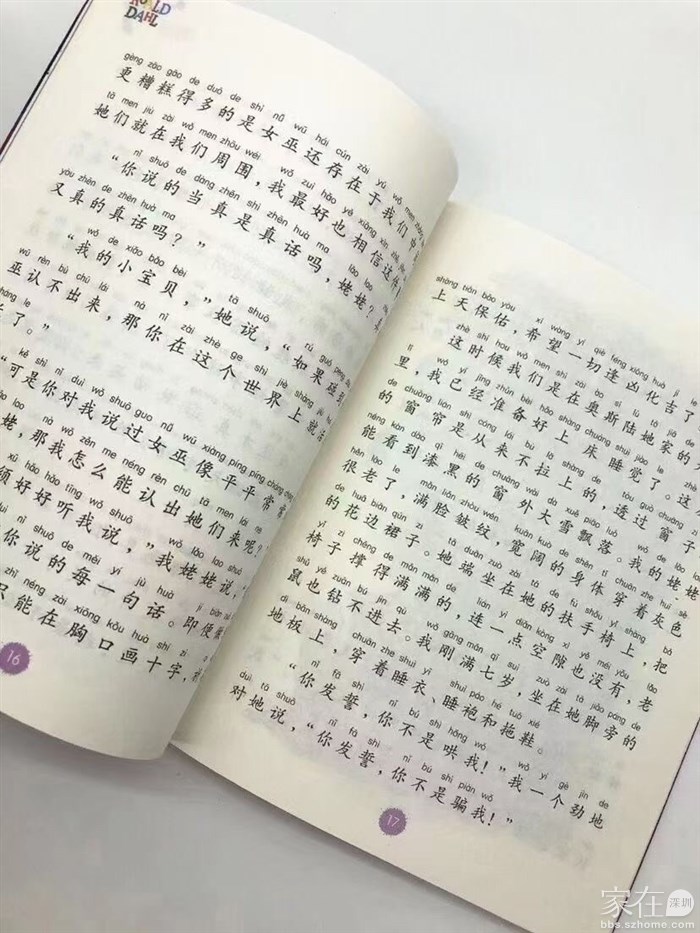 ROALD
DAHL
gèng zāo gāo de duō de shì nǚ wū hái cún zài yú wǒ men zhōng
更糟糕得多的是女巫还存在于我们中
tā men jiù zài wǒ men zhōu wéi wǒ zuì hǎo yě xiāng xìn zhè
她们就在我们周围，我最好也相信这件
nǐ shuō de dàng zhēn shì zhēn huà ma lǎo lao
“你说的当真是真话吗，姥姥？真
yòu zhēn de zhēn huà ma
又真的真话吗？”
wǒ de xiǎo bǎo bèi tā shuō rú guǒ
“我的小宝贝，”她说，“如果
wū rèn bù chū lái nà nǐ zài zhè ge shì jiè shàng jiù
巫认不出来，那你在这个世界上就活
le
了。”
kě shì nǐ duì wǒ shuō guo nǚ wū xiàng píng píng cháng cháng
“可是你对我说过女巫像平平常常
lao nà wǒ zěn me néng rèn chū tā men lái ne
姥，那我怎么能认出她们来呢？
xū hǎo hǎo tīng wǒ shuō wǒ lǎo lao shuō
须好好听我说，”我姥姥说，
nǐ shuō de měi yí jù huà jí biàn
你说的每一句话。即便
zhǐ néng zài xiōng kǒu huà shí zì
只能在胸口画十字，
16
shàng tiān bǎo yòu xī wàng yí qiè féng xiōng huà jí le
上天保佑，希望一切逢凶化吉了
zhè shí hou wǒ men shì zài ào sī lù tā jiā de
这时候我们是在奥斯陆她家的
lǐ wǒ yǐ jīng zhǔn bèi hǎo shàng chuáng shuì jiào le zhè
里，我已经准备好上床睡觉了。这
de chuāng lián shì cóng lái bù lā shàng de tòu guò chuāng zi
的窗帘是从来不拉上的，透过窗子
néng kàn dào qī hēi de chuāng wài dà xuě piāo luò wǒ de lǎo lao
能看到漆黑的窗外大雪飘落。我的姥姥
hěn lǎo le mǎn liǎn zhòu wén kuān kuò de shēn tǐ chuān zhe huī sè
很老了，满脸皱纹，宽阔的身体穿着灰色
de huā biān qún zi tā duān zuò zài tā de fú shǒu yǐ shàng bǎ
的花边裙子。她端坐在她的扶手椅上，把
yǐ zi chēng de mǎn mǎn de lián yì diǎn kòng xì yě méi yǒu lǎo
椅子撑得满满的，连一点空隙也没有，老
shǔ yě zuān bú jìn qù wǒ gāng mǎn qī suì zuò zài tā jiǎo páng de
鼠也钻不进去。我刚满七岁，坐在她脚旁的
dì bǎn shàng chuān zhe shuì yī shuì páo hé tuō xié
地板上，穿着睡衣、睡袍和拖鞋。
nǐ fā shì nǐ bú shì hǒng wǒ wǒ yí gè jìn de
“你发誓，你不是哄我！”我一个劲地
duì tā shuō nǐ fā shì nǐ bú shì piàn wǒ
对她说，“你发誓，你不是骗我！”
17
家在深圳
bbs.szhome.com